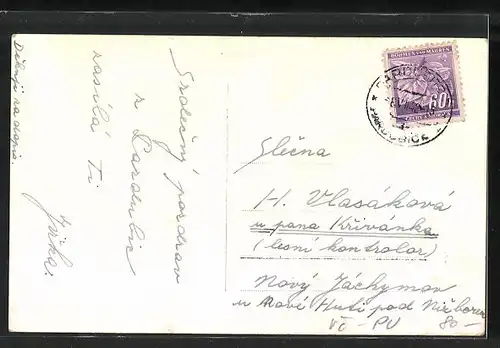 Srdečný pozdrav
z Pardubic
zasílá Ti
Jirka.
Děkuji za dopis.
BÖHMEN UND MÄHREN
60
PARDUBICE
Slečna
H. Vlasáková
u pana Křivánka
(lesní kontrolor)
Nový Jáchymov
u Nové Huti pod Nižborem
VČ - PU 80-